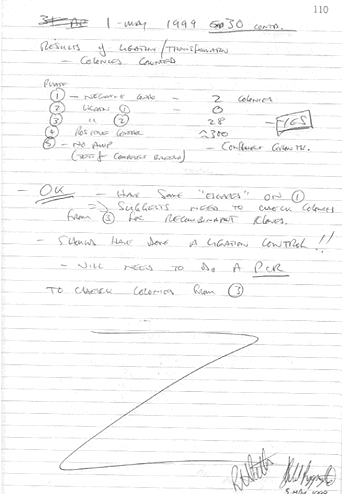 110
1-MAY 1999 30 CONTD.
RESULTS of LIGATION/TRANSFORMATION
- COLONIES COUNTED
PLATE
① - NEGATIVE - 2 COLONIES
② LIGATION ① - 0
③ " ② - 28 - YES
④ POSITIVE CONTROL ~300
⑤ - NO AMP - CONFLUENT GROWTH.
(TEST of COMPETENT)
- OK - HAVE SOME "ESCAPES" ON ①
=> SUGGESTS NEED TO CHECK COLONIES
FROM ③ FOR RECOMBINANT CLONES.
- SHOULD HAVE DONE A LIGATION CONTROL!!
- WILL NEED TO DO A PCR
TO CHECK COLONIES FROM ③
5 MAY 1999